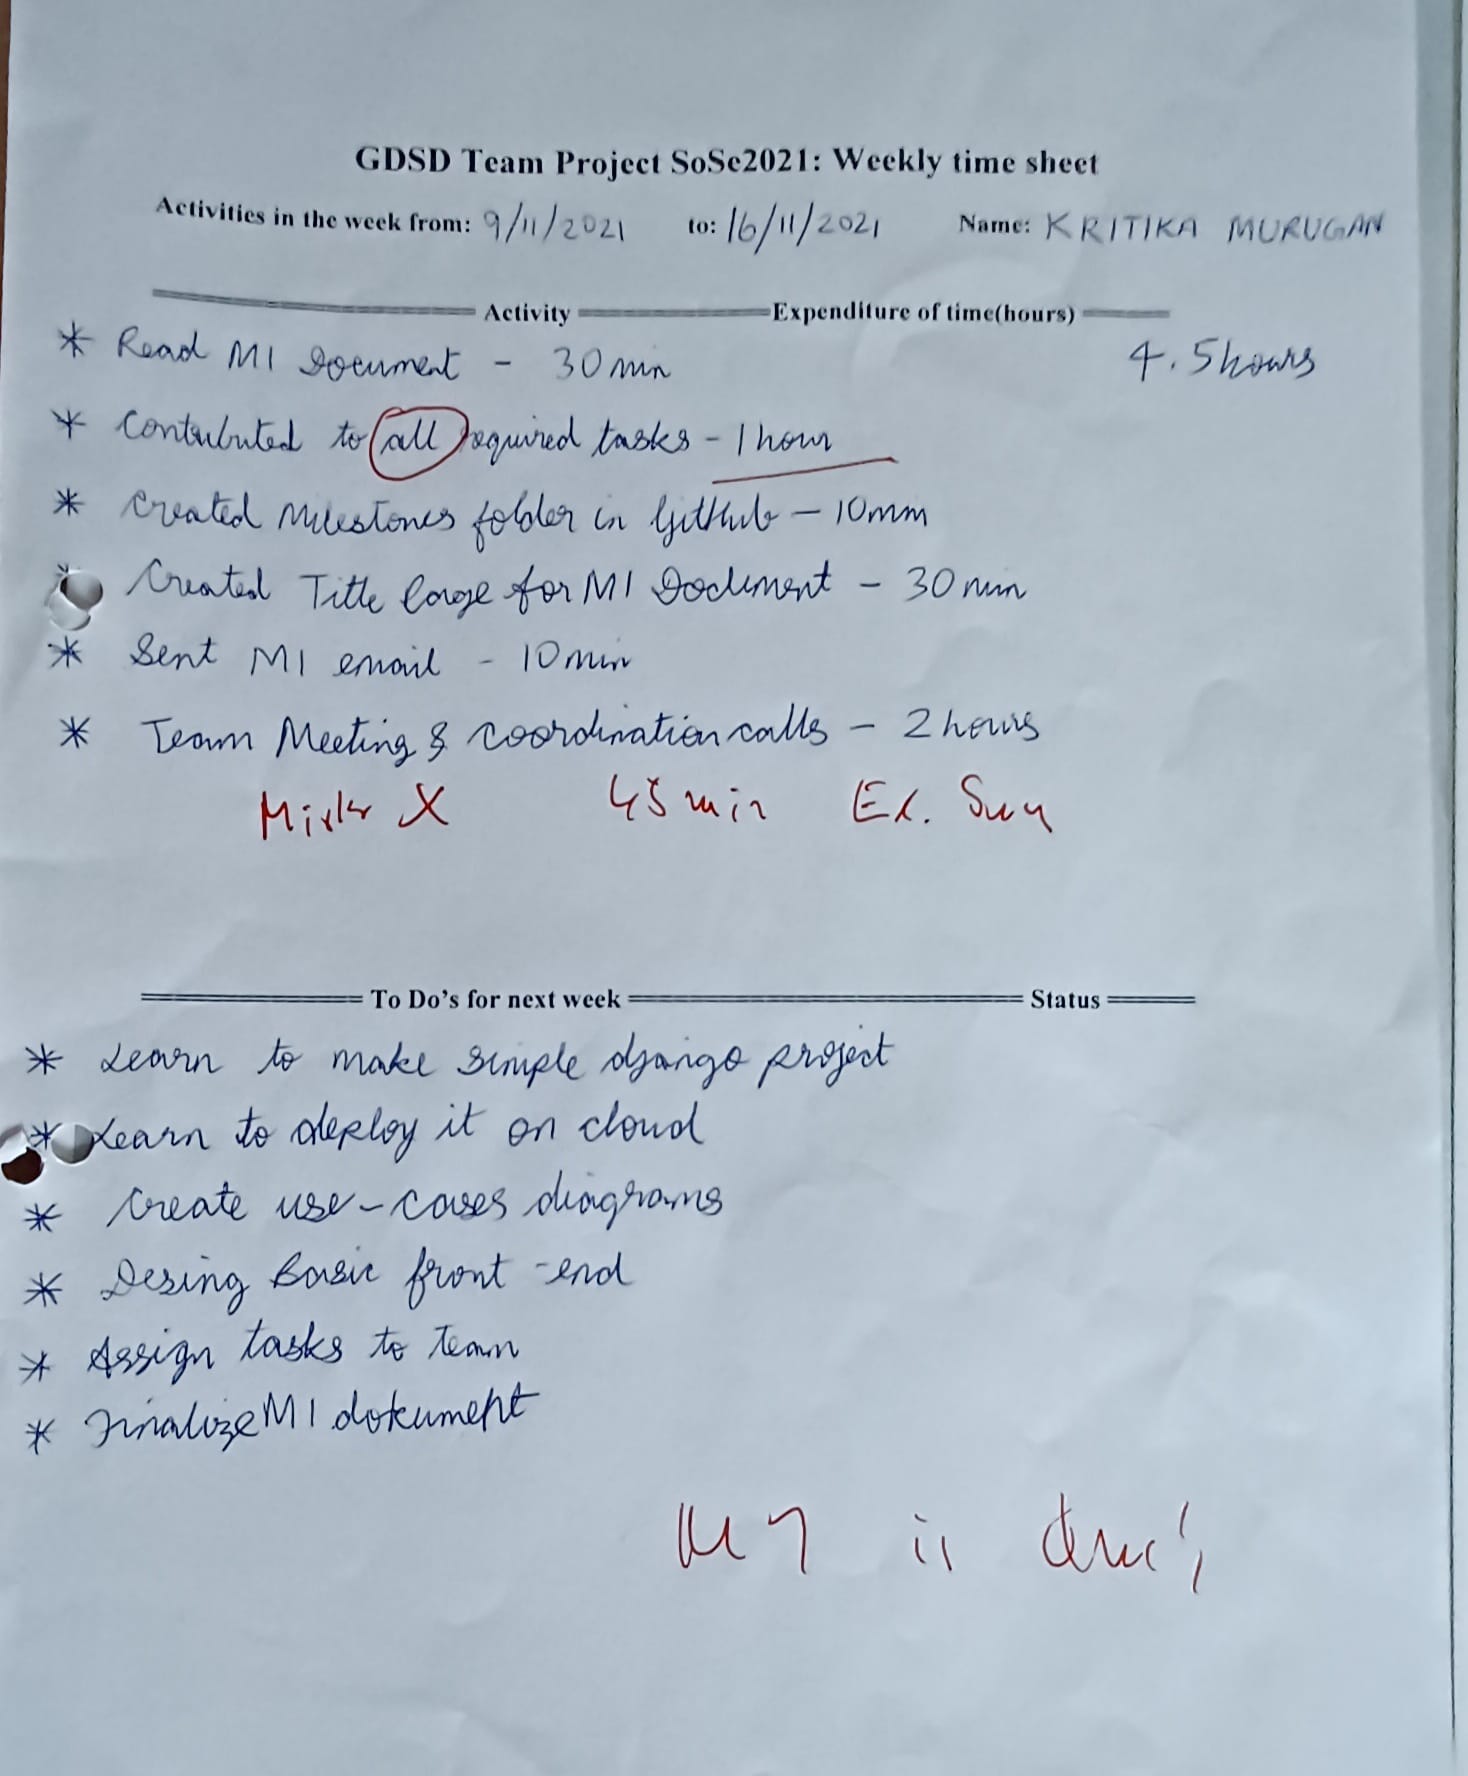 GDSD Team Project SoSe2021: Weekly time sheet
Activities in the week from: 9/11/2021 to: 16/11/2021 Name: KRITIKA MURUGAN
Activity Expenditure of time(hours)
* Read M1 Document - 30 min 4.5 hours
* Contributed to all required tasks - 1 hour
* Created Milestones folder in GitHub - 10 min
* Created Title Page for M1 Document - 30 min
* Sent M1 email - 10 min
* Team Meeting & coordination calls - 2 hours
X 45 min
To Do's for next week Status
* Learn to make simple django project
* Learn to deploy it on cloud
* Create use-cases diagrams
* Desing Basic front-end
* Assign tasks to team
* Finalize M1 dokument
M1 is